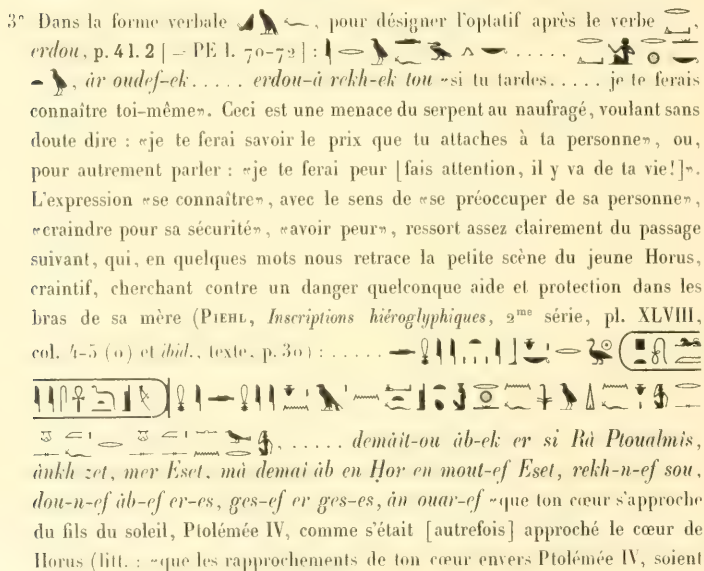 3° Dans la forme verbale , pour désigner l'optatif après le verbe ,
erdou, p. 41. 2 [ = PE l. 70-72] : . . . . .
, àr oudef-ek . . . . . erdou-à rekh-ek tou «si tu tardes. . . . . je te ferais
connaître toi-même». Ceci est une menace du serpent au naufragé, voulant sans
doute dire : «je te ferai savoir le prix que tu attaches à ta personne», ou,
pour autrement parler : «je te ferai peur [fais attention, il y va de ta vie!]».
L'expression «se connaître», avec le sens de «se préoccuper de sa personne»,
«craindre pour sa sécurité», «avoir peur», ressort assez clairement du passage
suivant, qui, en quelques mots nous retrace la petite scène du jeune Horus,
craintif, cherchant contre un danger quelconque aide et protection dans les
bras de sa mère (PIEHL, Inscriptions hiéroglyphiques, 2me série, pl. XLVIII,
col. 4-5 (o) et ibid., texte, p. 30) : . . . . .
, . . . . . demàit-ou àb-ek er si Rà Ptoualmis,
ànkh zet, mer Eset, mà demai àb en Ḥor en mout-ef Eset, rekh-n-ef sou,
dou-n-ef àb-ef er-es, ges-ef er ges-es, àn ouar-ef «que ton cœur s'approche
du fils du soleil, Ptolémée IV, comme s'était [autrefois] approché le cœur de
Horus (litt. : «que les rapprochements de ton cœur envers Ptolémée IV, soient